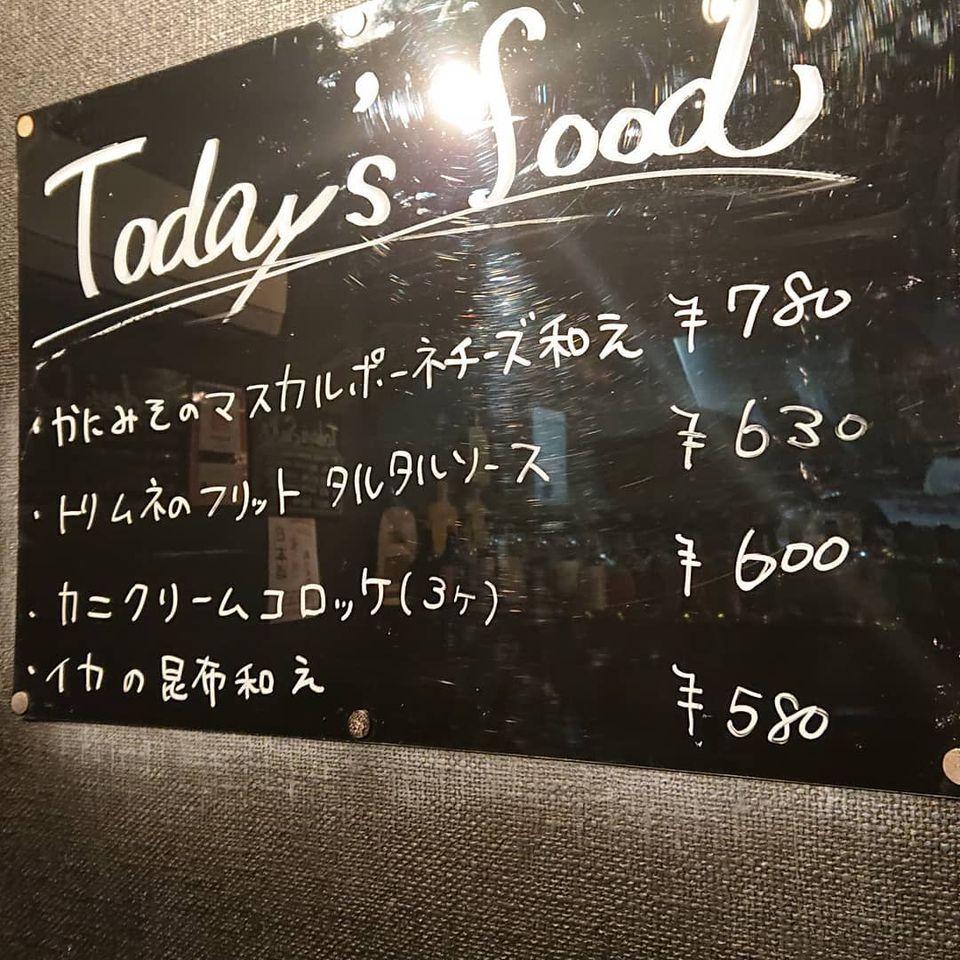 Today's food
・かにみそのマスカルポーネチーズ和え ¥780
・トリムネのフリット タルタルソース ¥630
・カニクリームコロッケ(3ヶ) ¥600
・イカの昆布和え ¥580